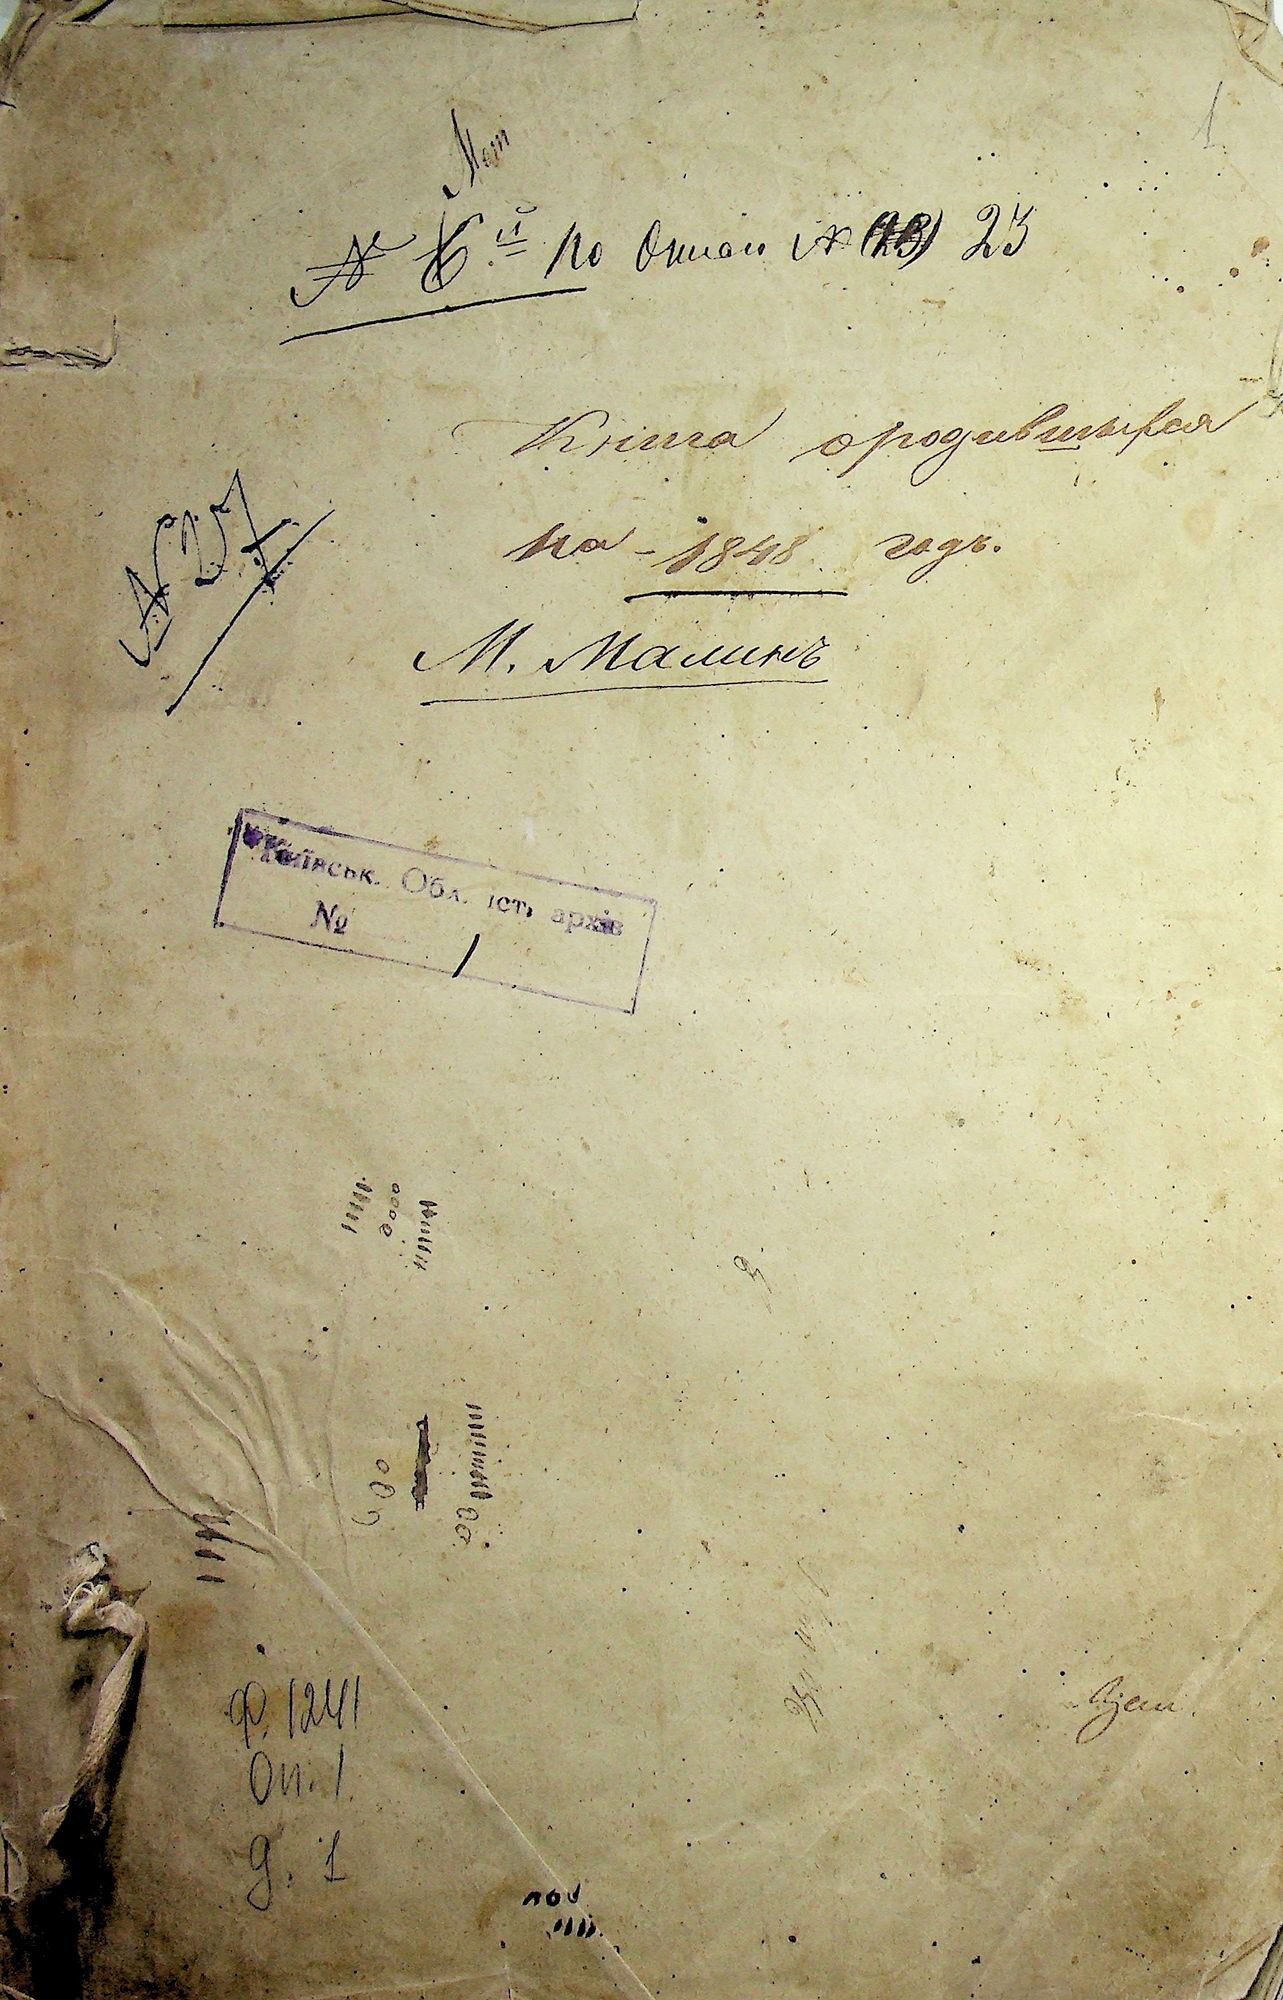 1
№ 6й по Описи № (13) 23
Книга о родившихся
на - 1848 годъ.
№ 27
М. Малинъ
Київськ. Обл. іст. архів
№ 1
Ф. 1241
Оп. 1
д. 1